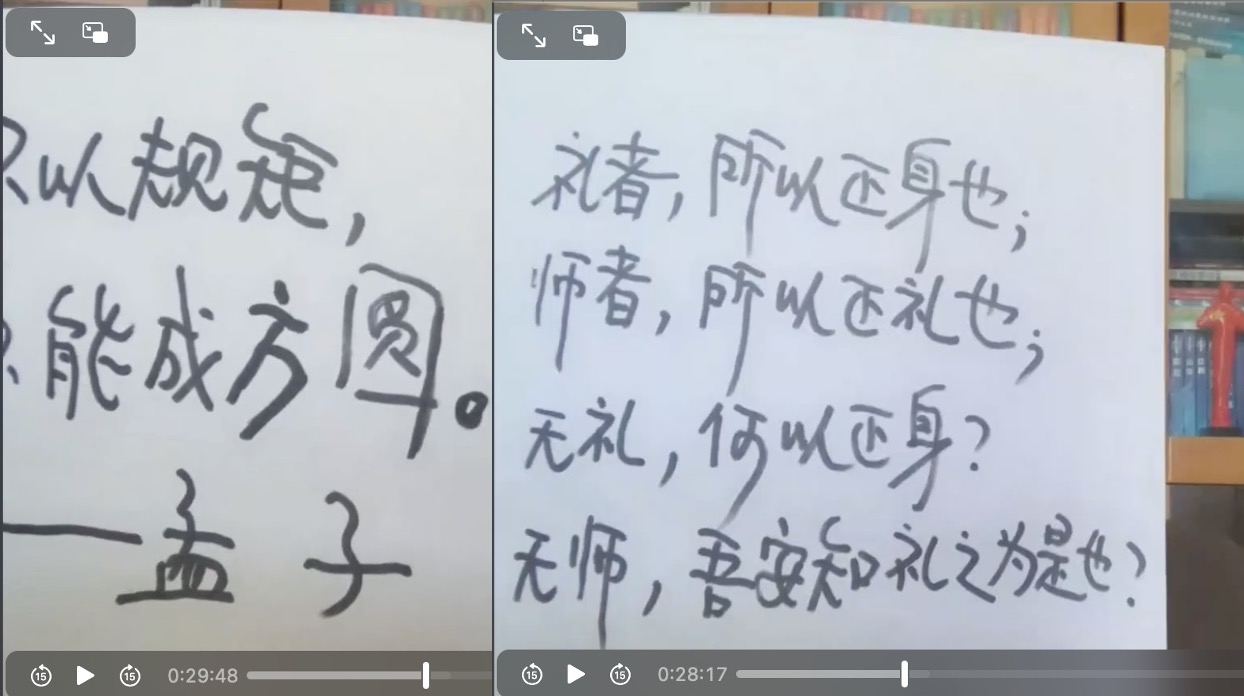 以规矩，
能成方圆。
——孟子
15 15 0:29:48
礼者，所以正身也；
师者，所以正礼也；
无礼，何以正身？
无师，吾安知礼之为是也？
15 15 0:28:17